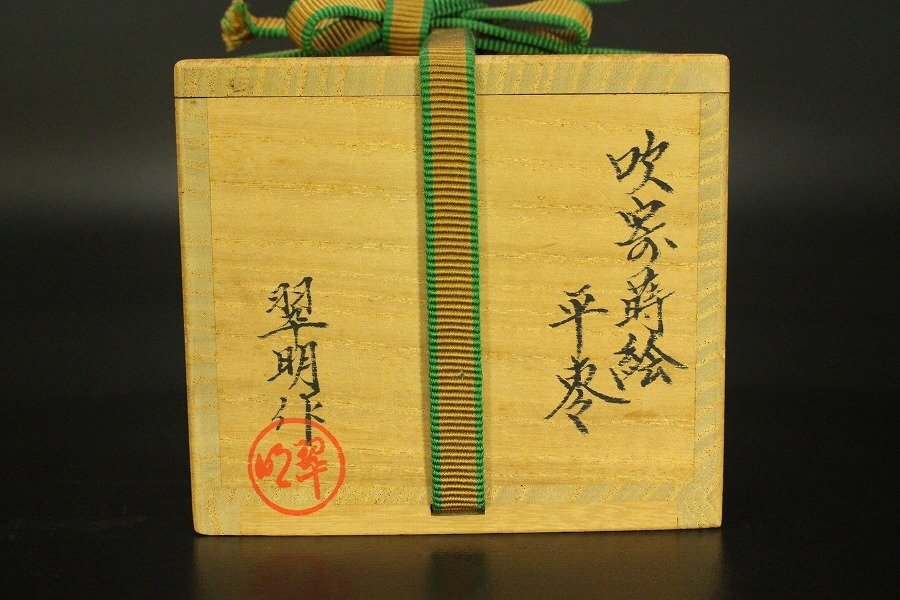 吹寄蒔絵
平棗
翠明作
翠明